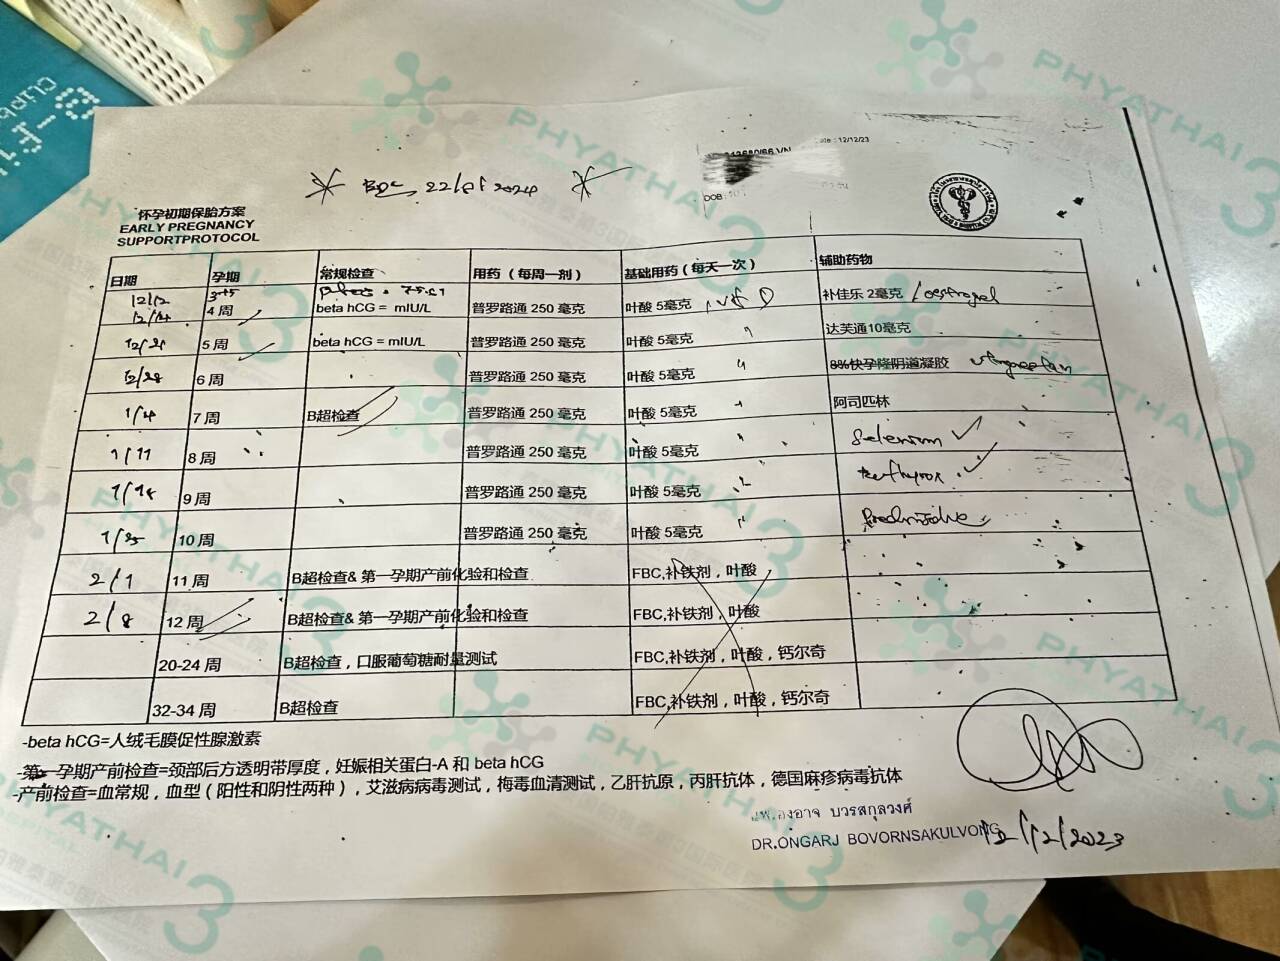 PHYATHAI 3
Date : 12/12/23
DOB :
EDC 22/8/2024
怀孕初期保胎方案
EARLY PREGNANCY
SUPPORTPROTOCOL
日期 孕期 常规检查 用药（每周一剂） 基础用药（每天一次） 辅助药物
12/12 3+5
12/14 4 周 beta hCG = mIU/L 普罗路通 250 毫克 叶酸 5毫克 补佳乐 2毫克 / oestrogel
12/21 5 周 beta hCG = mIU/L 普罗路通 250 毫克 叶酸 5毫克 " 达芙通10毫克
12/28 6 周 普罗路通 250 毫克 叶酸 5毫克 " 8%快孕隆阴道凝胶 utrogestan
1/4 7 周 B超检查 普罗路通 250 毫克 叶酸 5毫克 " 阿司匹林
1/11 8 周 普罗路通 250 毫克 叶酸 5毫克 " Selenium ✓
1/18 9 周 普罗路通 250 毫克 叶酸 5毫克 " ✓
1/25 10 周 普罗路通 250 毫克 叶酸 5毫克 "
2/1 11 周 B超检查& 第一孕期产前化验和检查 FBC,补铁剂，叶酸
2/8 12 周 B超检查& 第一孕期产前化验和检查 FBC,补铁剂，叶酸
20-24 周 B超检查，口服葡萄糖耐量测试 FBC,补铁剂，叶酸，钙尔奇
32-34 周 B超检查 FBC,补铁剂，叶酸，钙尔奇
-beta hCG=人绒毛膜促性腺激素
-第一孕期产前检查=颈部后方透明带厚度，妊娠相关蛋白-A 和 beta hCG
-产前检查=血常规，血型（阳性和阴性两种），艾滋病病毒测试，梅毒血清测试，乙肝抗原，丙肝抗体，德国麻疹病毒抗体
นพ.องอาจ บวรสกุลวงศ์
DR.ONGARJ BOVORNSAKULVONG 12/12/2023